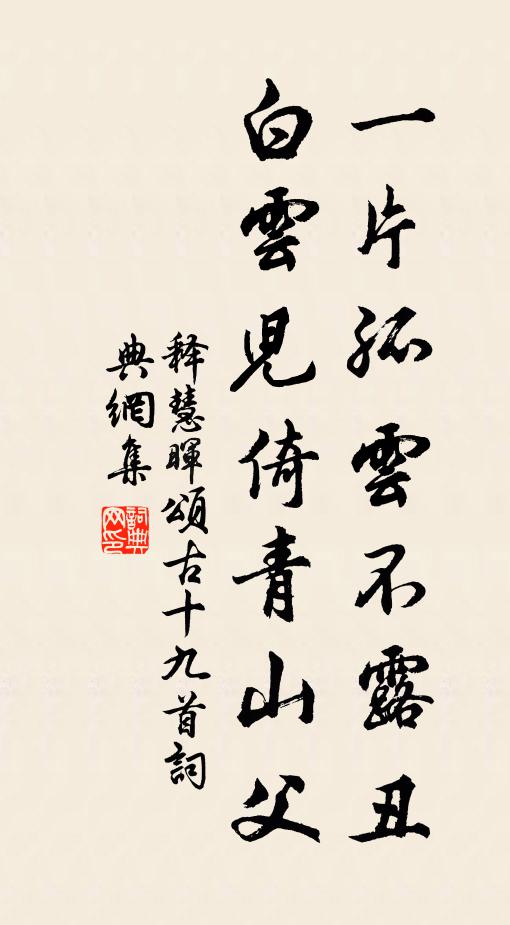 一片孤雲不露丑
白雲児倚青山父
释慧暉頌古十九首詞
典網集
詞典網印